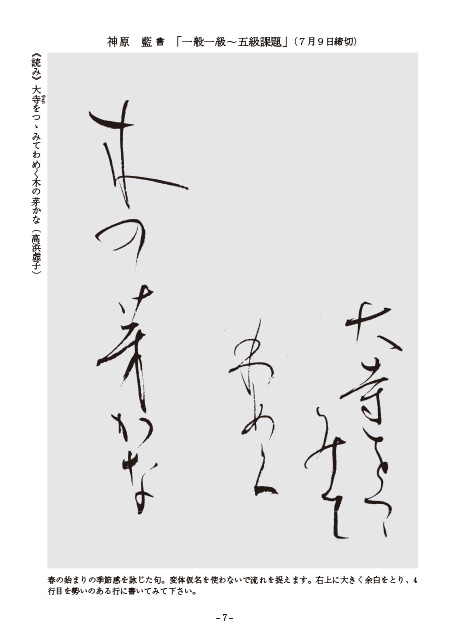 神原 藍 書 「一般一級～五級課題」（７月９日締切）
《読み》大寺をつゝみてわめく木の芽かな（高浜虚子）
でら
大寺をつゝ
みて
わめく
木の芽かな
春の始まりの季節感を詠じた句。変体仮名を使わないで流れを捉えます。右上に大きく余白をとり、4
行目を勢いのある行に書いてみて下さい。
-7-